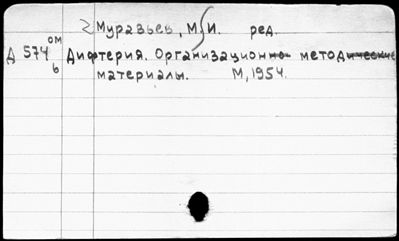 Муразьев, М. И. ред.
ом
Д 574 Дифтерия. Организационно методические
б материалы. М, 1954.